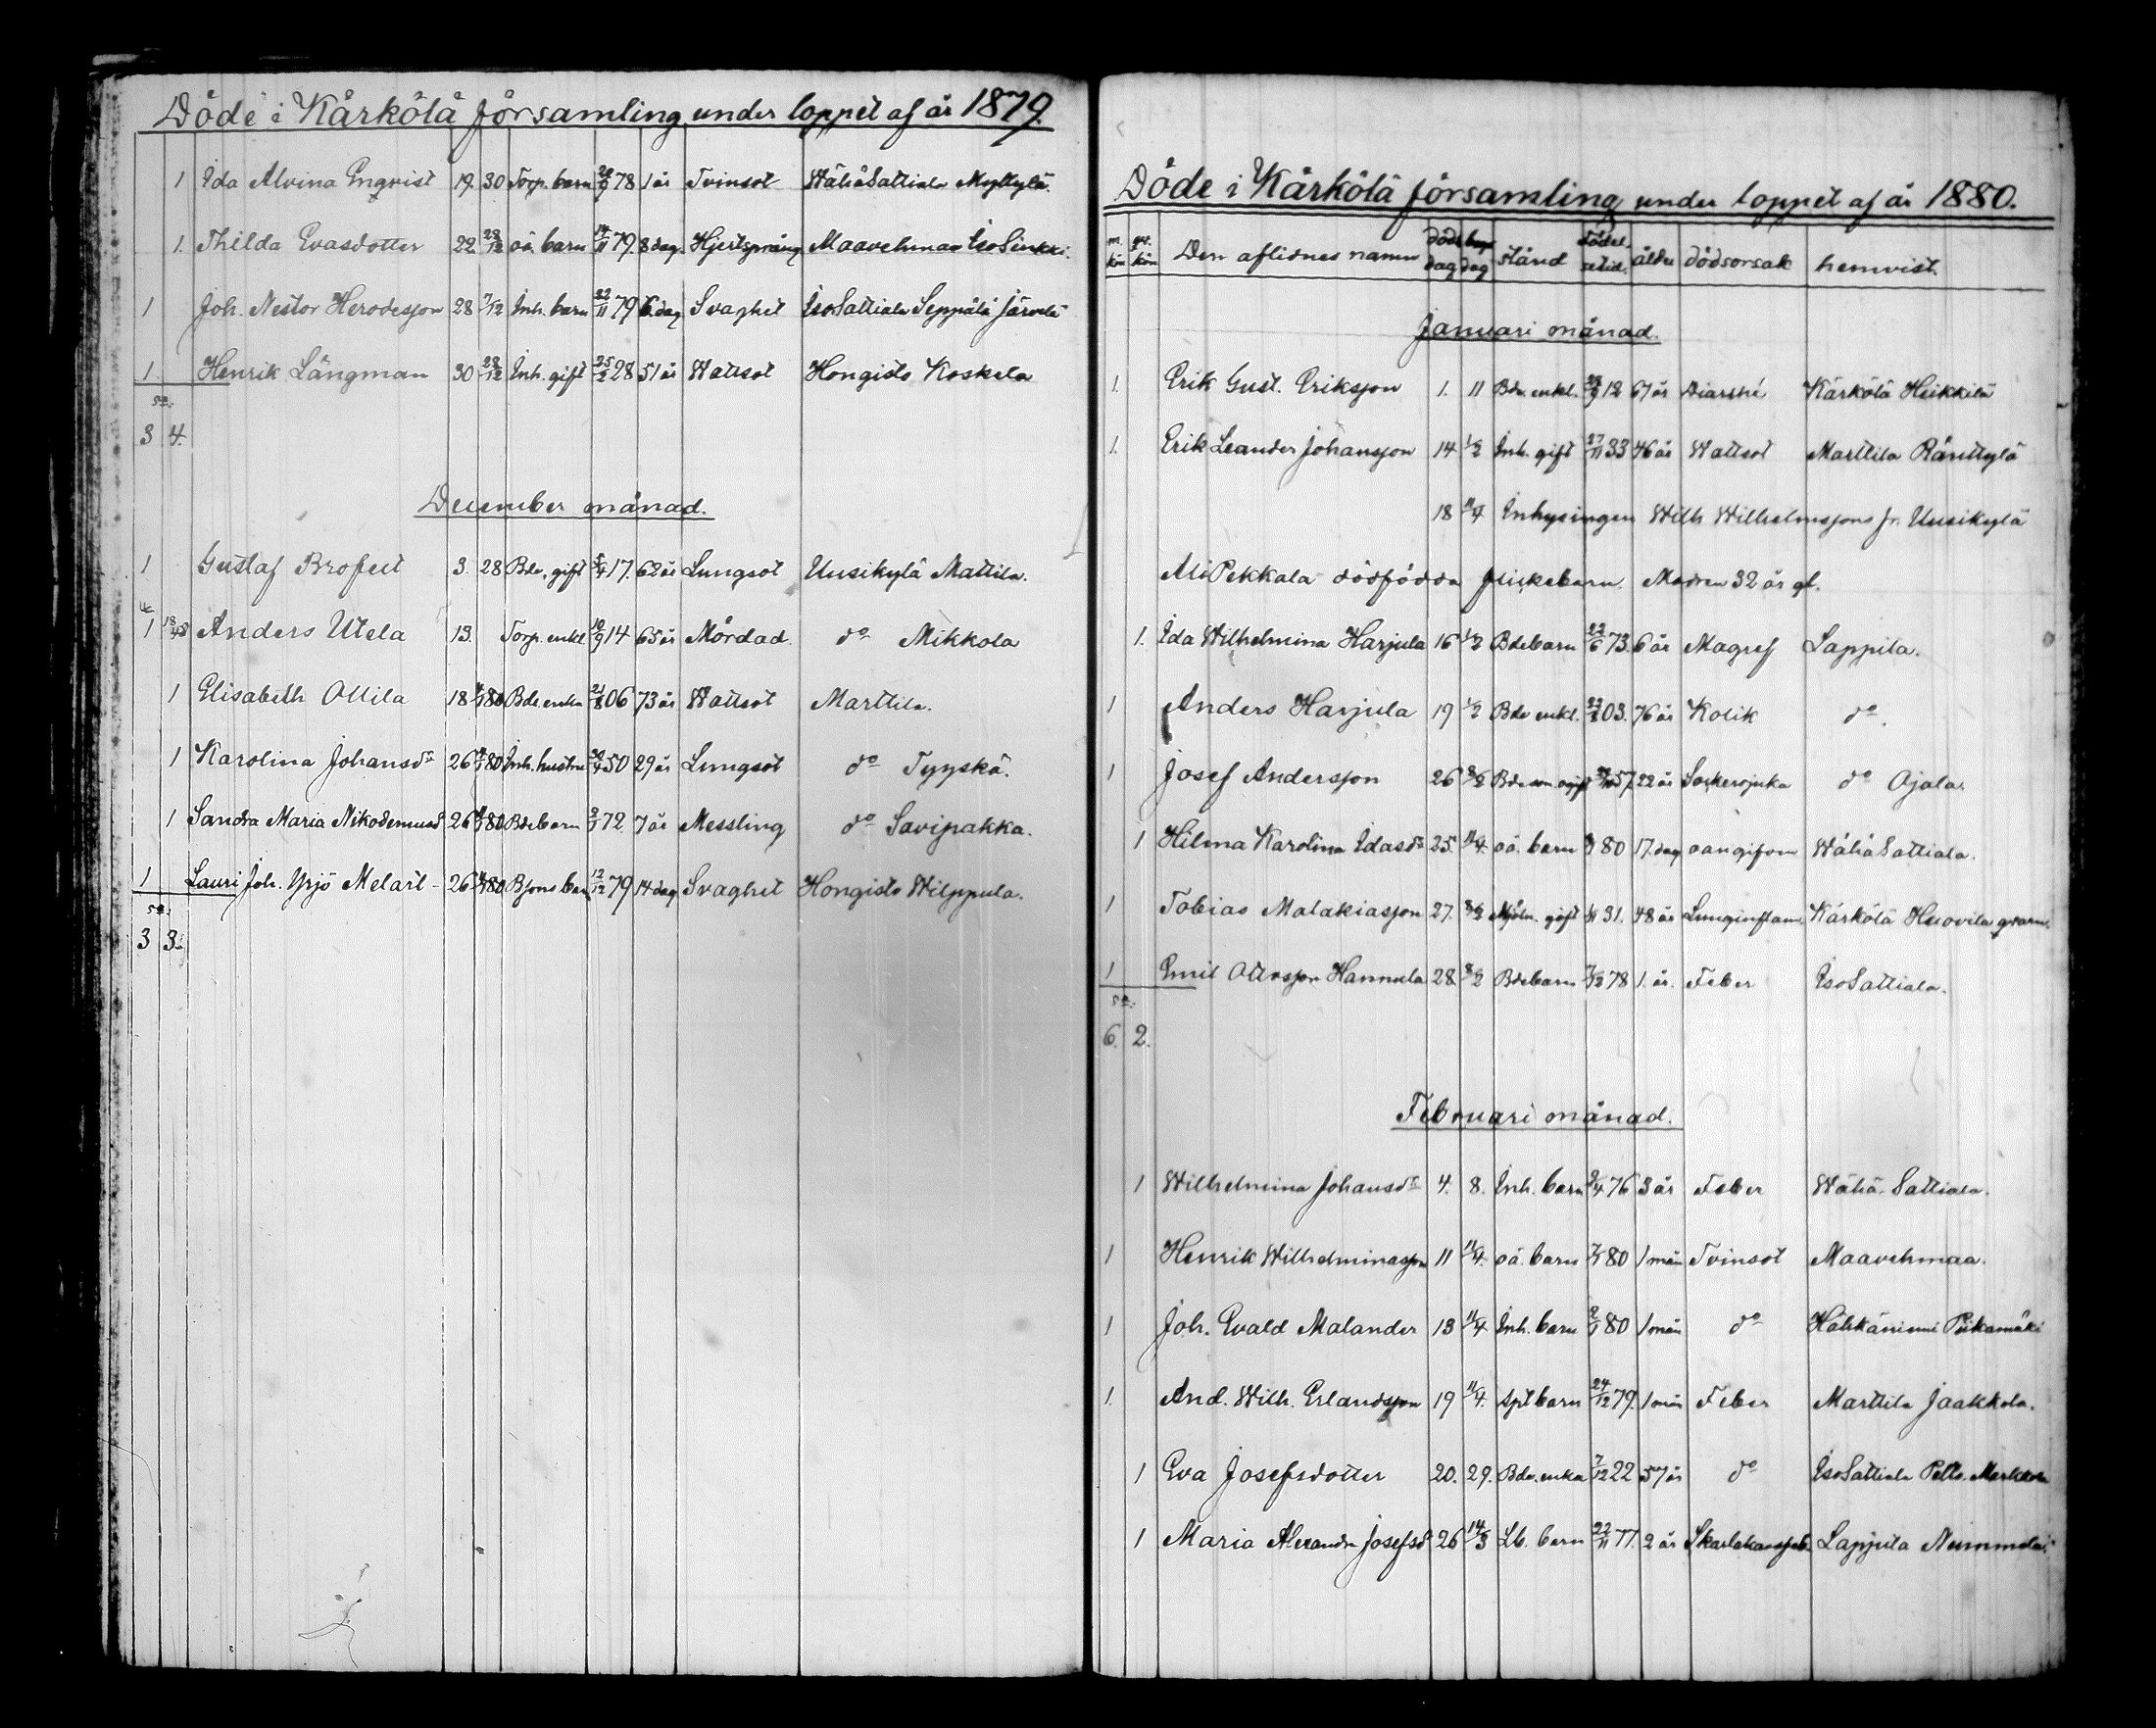 Döde i Kärkölä församling under loppet af år 1879.
1 Ida Alvina Enqvist 19. 30 Torp. barn 78 1 år Tvinsot WähäSattiala Myllylä.
1. Thilda Evasdotter 22. 28/12 oä. barn 14/11 79. 8 dag. Hjertsprång Maavehmaa IsoSinkki.
1 Joh. Nestor Herodesson 28 7/12 Inh. barn 22/11 79 6. dag Svaghet IsoSattiala Seppälä Järvelä
1. Henrik Långman 30 28/12 Inh. gift 25/2 28 51 år Wattsot Hongisto Koskela
Sa:
3 4.
December månad.
1 Gustaf Brofeit 3. 28 Bde. gift 5/4 17. 62 år Lungsot Uusikylä Mattila.
1 Anders Utela 13. Torp. enkl. 10/9 14 65 år Mördad. do Mikkola
1 Elisabeth Ollila 18 80 Bde enka 06 73 år Wattsot Marttila.
1 Karolina Johansdr 26 80 Inh. hustru 50 29 år Lungsot do Tyyskä.
1 Sandra Maria Nikodemusd 26 80 Bdebarn 72 7 år Messling do Savipakka.
1 Lauri Joh. Yrjö Melart 26 80 Bsons barn 12/12 79 14 dag Svaghet Hongisto Wilppula.
Sa:
3 3.
Döde i Kärkölä församling under loppet af år 1880.
m. kön qv. kön Den aflidnes namn döds dag begr. dag stånd födelsetid. ålder dödsorsak hemvist.
Januari månad.
1. Erik Gust. Eriksson 1. 11 Bde. enkl. 12 67 år Diarrhé Kärkölä Heikkilä
1. Erik Leander Johansson 14 1/2 Inh. gift 27/11 33 46 år Wattsot Marttila Ränttylä
18 11/4 Inhysingen Wilh. Wilhelmssons fr. Uusikylä
AliPekkala dödfödda flickebarn. Modren 32 år gl.
1. Ida Wilhelmina Harjula 16 1/2 Bdebarn 22/6 73. 6 år Magref Lappila.
1 Anders Harjula 19 1/2 Bde enkl. 03. 76 år Kolik do.
1 Josef Andersson 26 8/2 Bdeson ogift 57. 22 år Sockersjuka do Ojala.
1 Hilma Karolina Idasdr 25. 11/4. oä. barn 80 17. dag oangifven WähäSattiala.
1 Tobias Malakiasson 27. 8/2 Mjöln. gift 31. 48 år Lunginflam. Kärkölä Huovila qvarn.
1 Emil Ottosson Hannula 28 8/2 Bdebarn 78 1. år. Feber IsoSattiala.
Sa:
6. 2.
Februari månad.
1 Wilhelmina Johansdr 4. 8. Inh. barn 9/4 76 3 år Feber Wähä-Sattiala.
1 Henrik Wilhelminasson 11 11/4. oä. barn 80 1 mån Tvinsot Maavehmaa.
1 Joh. Evald Malander 13 11/4 Inh. barn 80 1 mån do Hähkäniemi Piikamäki
1. And. Wilh. Erlandsson 19 11/4. Spl barn 24/12 79. 1 mån Feber Marttila Jaakkola.
1 Eva Josefsdotter 20. 29. Bde. enka 7/12 22 57 år do IsoSattiala Pelto-Markkola
1 Maria Alexandra Josefsd 26 14/3 Lb. barn 22/11 77. 2 år Skarlakansfeb. Lappila Nummela.